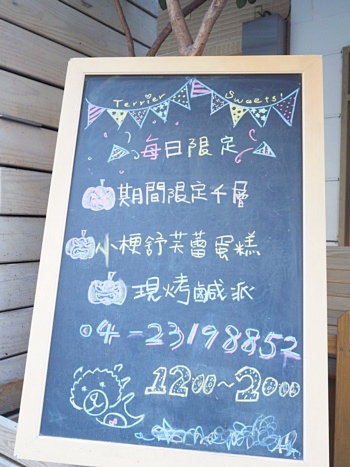 Terrier Sweets!
每日限定
期間限定千層
小梗舒芙蕾蛋糕
現烤鹹派
04-23198852
1200~2000